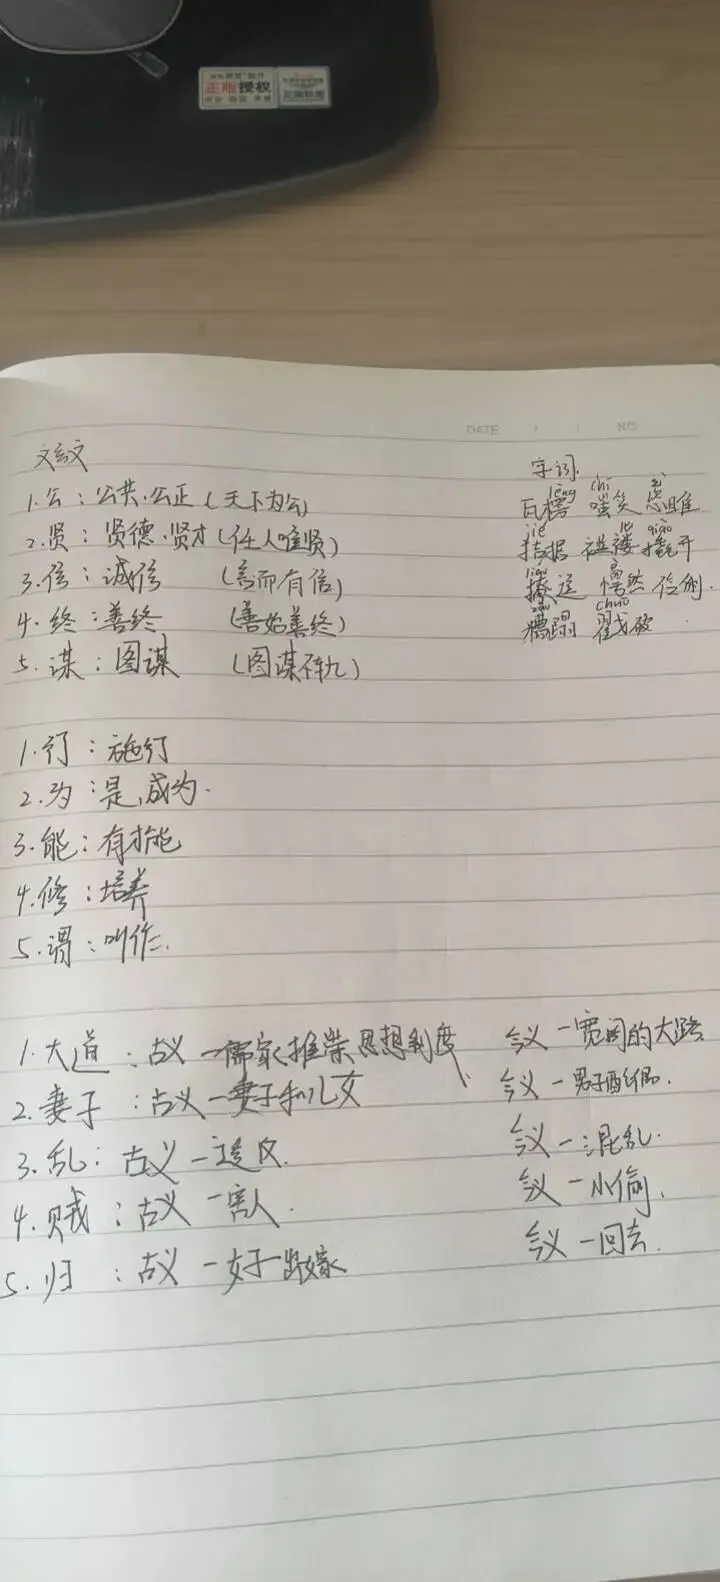 正版授权
DATE / / NO
文言文
1.公：公共.公正(天下为公)
2.贤：贤德.贤才(任人唯贤)
3.信：诚信 (言而有信)
4.终：善终 (善始善终)
5.谋：图谋 (图谋不轨)
字词
léng chī zì
瓦楞 嗤笑 恣睢
jié lǚ qiào
拮据 褴褛 撬开
liáo
撩逗 愕然 伶俐.
zāo chuō
糟蹋 戳破
1.行：施行
2.为：是,成为.
3.能：有才能
4.修：培养
5.谓：叫作.
1.大道：古义—儒家推崇思想制度 今义—宽阔的大路
2.妻子：古义—妻子和儿女 今义—男子配偶.
3.乱：古义—造反. 今义—混乱.
4.贼：古义—害人. 今义—小偷.
5.归：古义—女子出嫁 今义—回去.